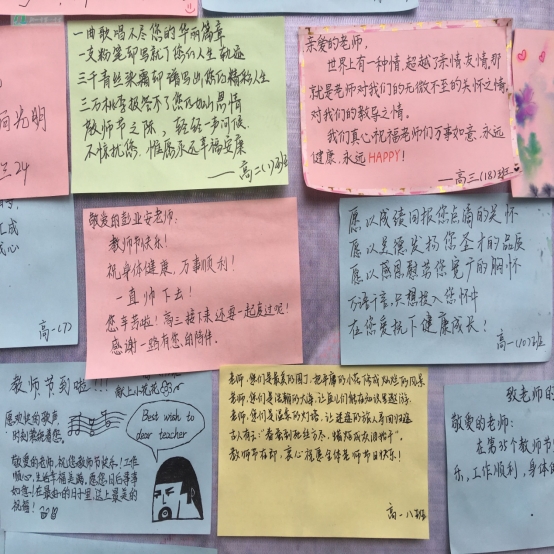 一曲歌唱不尽您的华丽篇章
一支粉笔却写就了您们人生轨迹
三千青丝染霜却谱写出您们精彩人生
三万桃李报答不了您们如山恩情
教师节之际，轻轻一声问候
不惊扰您，惟愿永远幸福安康
——高二(1)班
亲爱的老师，
世界上有一种情，超越了亲情、友情，那
就是老师对我们的无微不至的关怀之情，
对我们的教导之情。
我们真心祝福老师们万事如意，永远
健康，永远HAPPY！
——高三(18)班
向光明
24
敬爱的彭亚安老师：
教师节快乐！
祝身体健康，万事顺利！
一直帅下去！
您辛苦啦！高三接下来还要一起度过呢！
感谢一路有您的陪伴。
愿以成绩回报您点滴的关怀
愿以美德发扬您圣才的品质
愿以感恩慰藉您宽广的胸怀
万语千言，只想投入您怀中
在您爱抚下健康成长！
高一(10)班
高一(7)
教师节到啦！！！
献上小花花
愿欢快的歌声
时刻萦绕着您。
敬爱的老师，祝您教师节快乐！工作
顺心，生活幸福美满。愿您日后事事
如意！在最美的日子里，送上最美的
祝福！
Best wish to
dear teacher
老师，您们是最美的园丁，把平庸的小花修成灿烂的风景
老师，您们是浩瀚的大海，让鱼儿们在知识里遨游
老师，您们是温柔的灯塔，让迷途的旅人寻回归途
古人有云"春蚕到死丝方尽，蜡炬成灰泪始干"。
教师节在即，衷心祝愿全体老师节日快乐！
高一八班
致老师的
敬爱的老师：
在第35个教师节
乐，工作顺利，身体